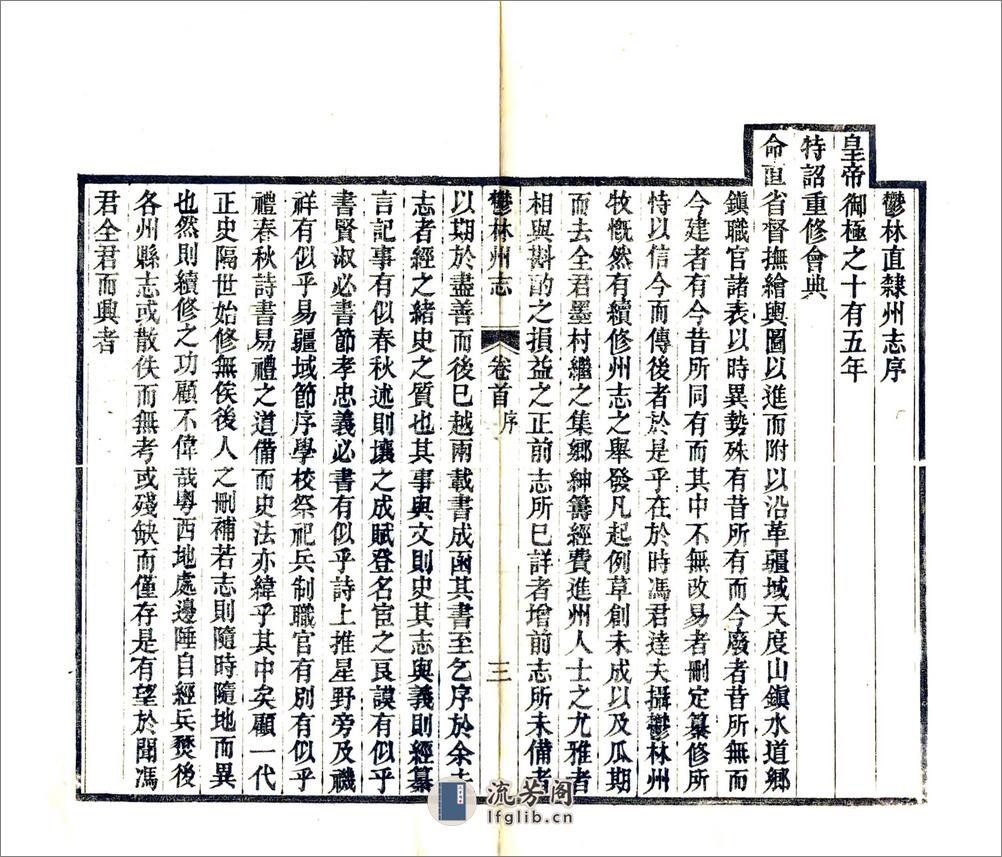 鬱林直隸州志序
皇帝御極之十有五年
特詔重修會典
命直省督撫繪輿圖以進而附以沿革疆域天度山鎮水道鄉
鎮職官諸表以時異勢殊有昔所有而今廢者昔所無而
今建者有今昔所同有而其中不無改易者刪定纂修所
恃以信今而傳後者於是乎在於時馮君達夫攝鬱林州
牧慨然有續修州志之舉發凡起例草創未成以及瓜期
而去全君墨村繼之集鄉紳籌經費進州人士之尤雅者
相與斟酌之損益之正前志所已詳者增前志所未備者
鬱林州志 卷首 序 三
以期於盡善而後已越兩載書成函其書至乞序於余夫
志者經之緒史之質也其事與文則史其志與義則經纂
言記事有似春秋述則壤之成賦登名宦之良謨有似乎
書賢淑必書節孝忠義必書有似乎詩上推星野旁及禨
祥有似乎易疆域節序學校祭祀兵制職官有別有似乎
禮春秋詩書易禮之道備而史法亦緯乎其中矣顧一代
正史隔世始修無俟後人之刪補若志則隨時隨地而異
也然則續修之功顧不偉哉粵西地處邊陲自經兵燹後
各州縣志或散佚而無考或殘缺而僅存是有望於聞馮
君全君而興者
流芳阁
lfglib.cn